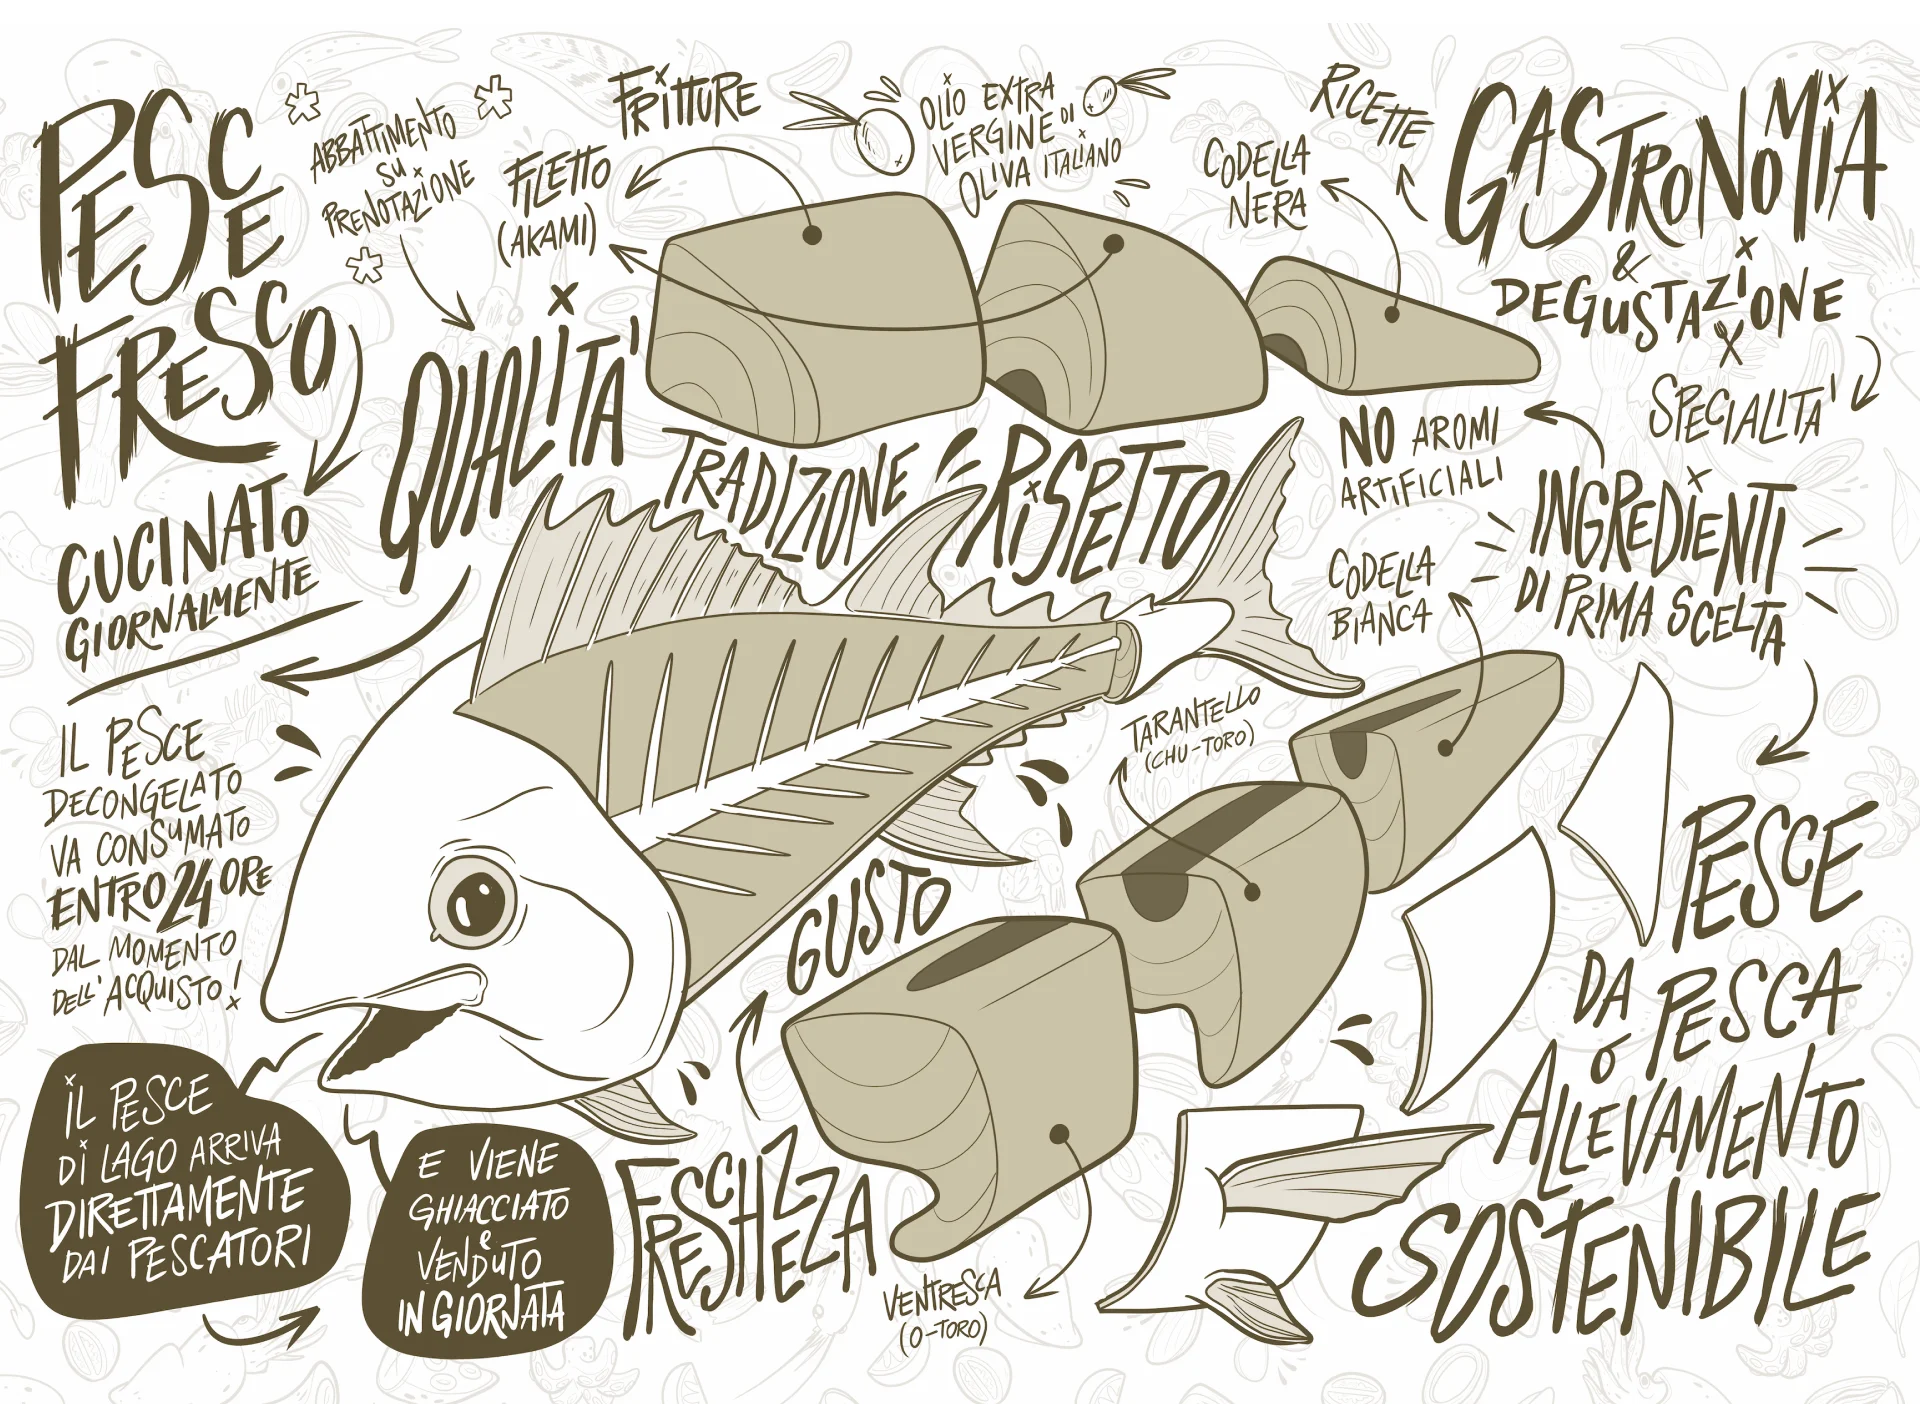 PESCE
FRESCO
CUCINATO
GIORNALMENTE
ABBATTIMENTO
SU
PRENOTAZIONE
QUALITA'
FRITTURE
FILETTO
(AKAMI)
OLIO EXTRA
VERGINE DI
OLIVA ITALIANO
CODELLA
NERA
RICETTE
GASTRONOMIA
&
DEGUSTAZIONE
SPECIALITA'
TRADIZIONE
RISPETTO
NO AROMI
ARTIFICIALI
INGREDIENTI
DI PRIMA SCELTA
CODELLA
BIANCA
TARANTELLO
(CHU-TORO)
IL PESCE
DECONGELATO
VA CONSUMATO
ENTRO 24 ORE
DAL MOMENTO
DELL'ACQUISTO!
GUSTO
PESCE
DA PESCA
O
ALLEVAMENTO
SOSTENIBILE
IL PESCE
DI LAGO ARRIVA
DIRETTAMENTE
DAI PESCATORI
E VIENE
GHIACCIATO
e
VENDUTO
IN GIORNATA
FRESCHEZZA
VENTRESCA
(O-TORO)